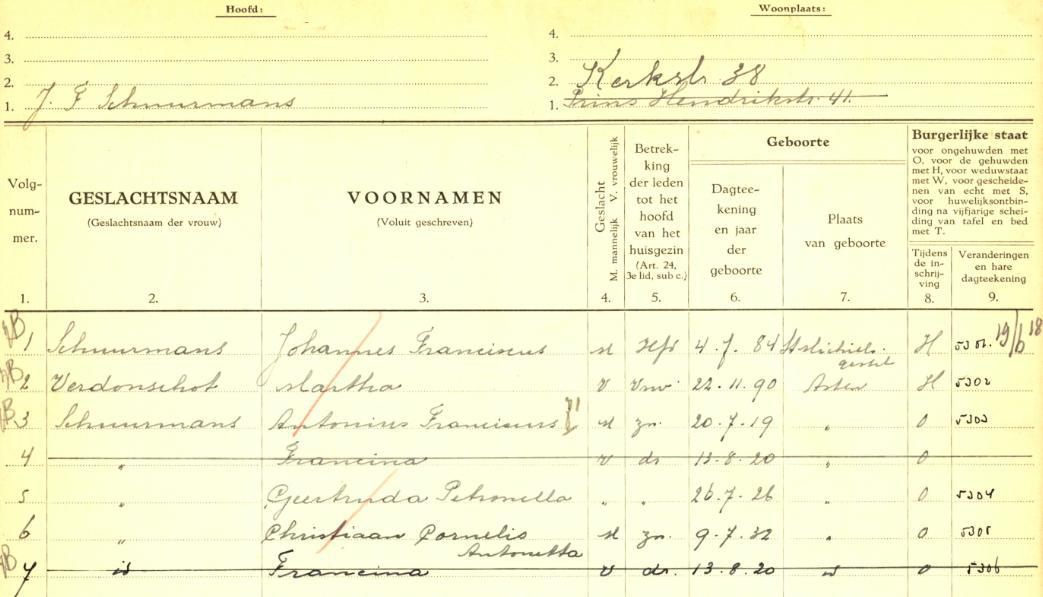 Hoofd:
4.
3.
2.
1. J. F Schuurmans
Woonplaats:
4.
3.
2. Kerkstr. 38
1. Prins Hendrikstr. 41.
Volg-
num-
mer.
1.
GESLACHTSNAAM
(Geslachtsnaam der vrouw)
2.
VOORNAMEN
(Voluit geschreven)
3.
Geslacht
M. mannelijk V. vrouwelijk
4.
Betrek-
king
der leden
tot het
hoofd
van het
huisgezin
(Art. 24,
3e lid, sub c.)
5.
Geboorte
Dagtee-
kening
en jaar
der
geboorte
6.
Plaats
van geboorte
7.
Burgerlijke staat
voor ongehuwden met
O, voor de gehuwden
met H, voor weduwstaat
met W, voor gescheide-
nen van echt met S,
voor huwelijksontbin-
ding na vijfjarige schei-
ding van tafel en bed
met T.
Tijdens
de in-
schrij-
ving
8.
Veranderingen
en hare
dagteekening
9.
1 Schuurmans Johannes Franciscus M Hfd 4.7.84 St Michiels- H 5301. 19/6 18
gestel
2 Verdonschot Martha V Vrw 22.11.90 Asten H 5302
3 Schuurmans Antonius Franciscus M zn. 20.7.19 " O 5303
4 " Francina V dr 13.8.20 " O
5 " Geertruda Petronella " " 26.7.26 " O 5304
6 " Christiaan Cornelis M zn. 9.7.32 " O 5305
Antonetta
7 id Francina V dr. 13.8.20 id O 5306